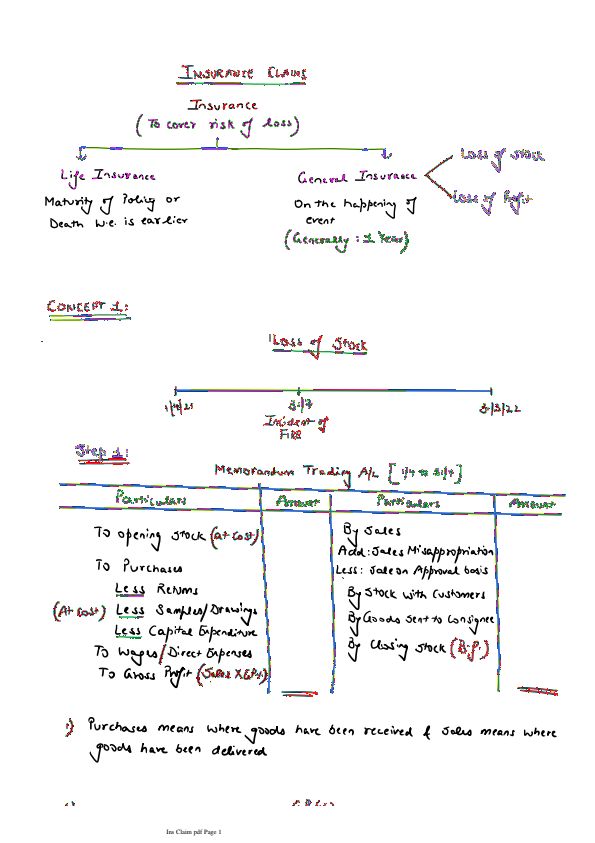 INSURANCE CLAIMS
Insurance
(To cover risk of loss)
Life Insurance
Maturity of Policy or
Death w.e. is earlier
General Insurance
On the happening of
event
(Generally : 1 Year)
Loss of Stock
Loss of Profit
CONCEPT 1:
Loss of Stock
1/4/21
31/7
31/3/22
Incident of
Fire
Step 1:
Memorandum Trading A/c [1/4 to 31/7]
Particulars Amount Particulars Amount
To opening stock (at cost)
To Purchases
Less Returns
(At cost) Less Samples/Drawings
Less Capital Expenditure
To Wages/Direct Expenses
To Gross Profit (Sales X G.P.%)
By Sales
Add: Sales Misappropriation
Less: Sale on Approval basis
By Stock with Customers
By Goods Sent to Consignee
By Closing Stock (B.f.)
1) Purchases means where goods have been received & Sales means where
goods have been delivered
Ins Claim pdf Page 1